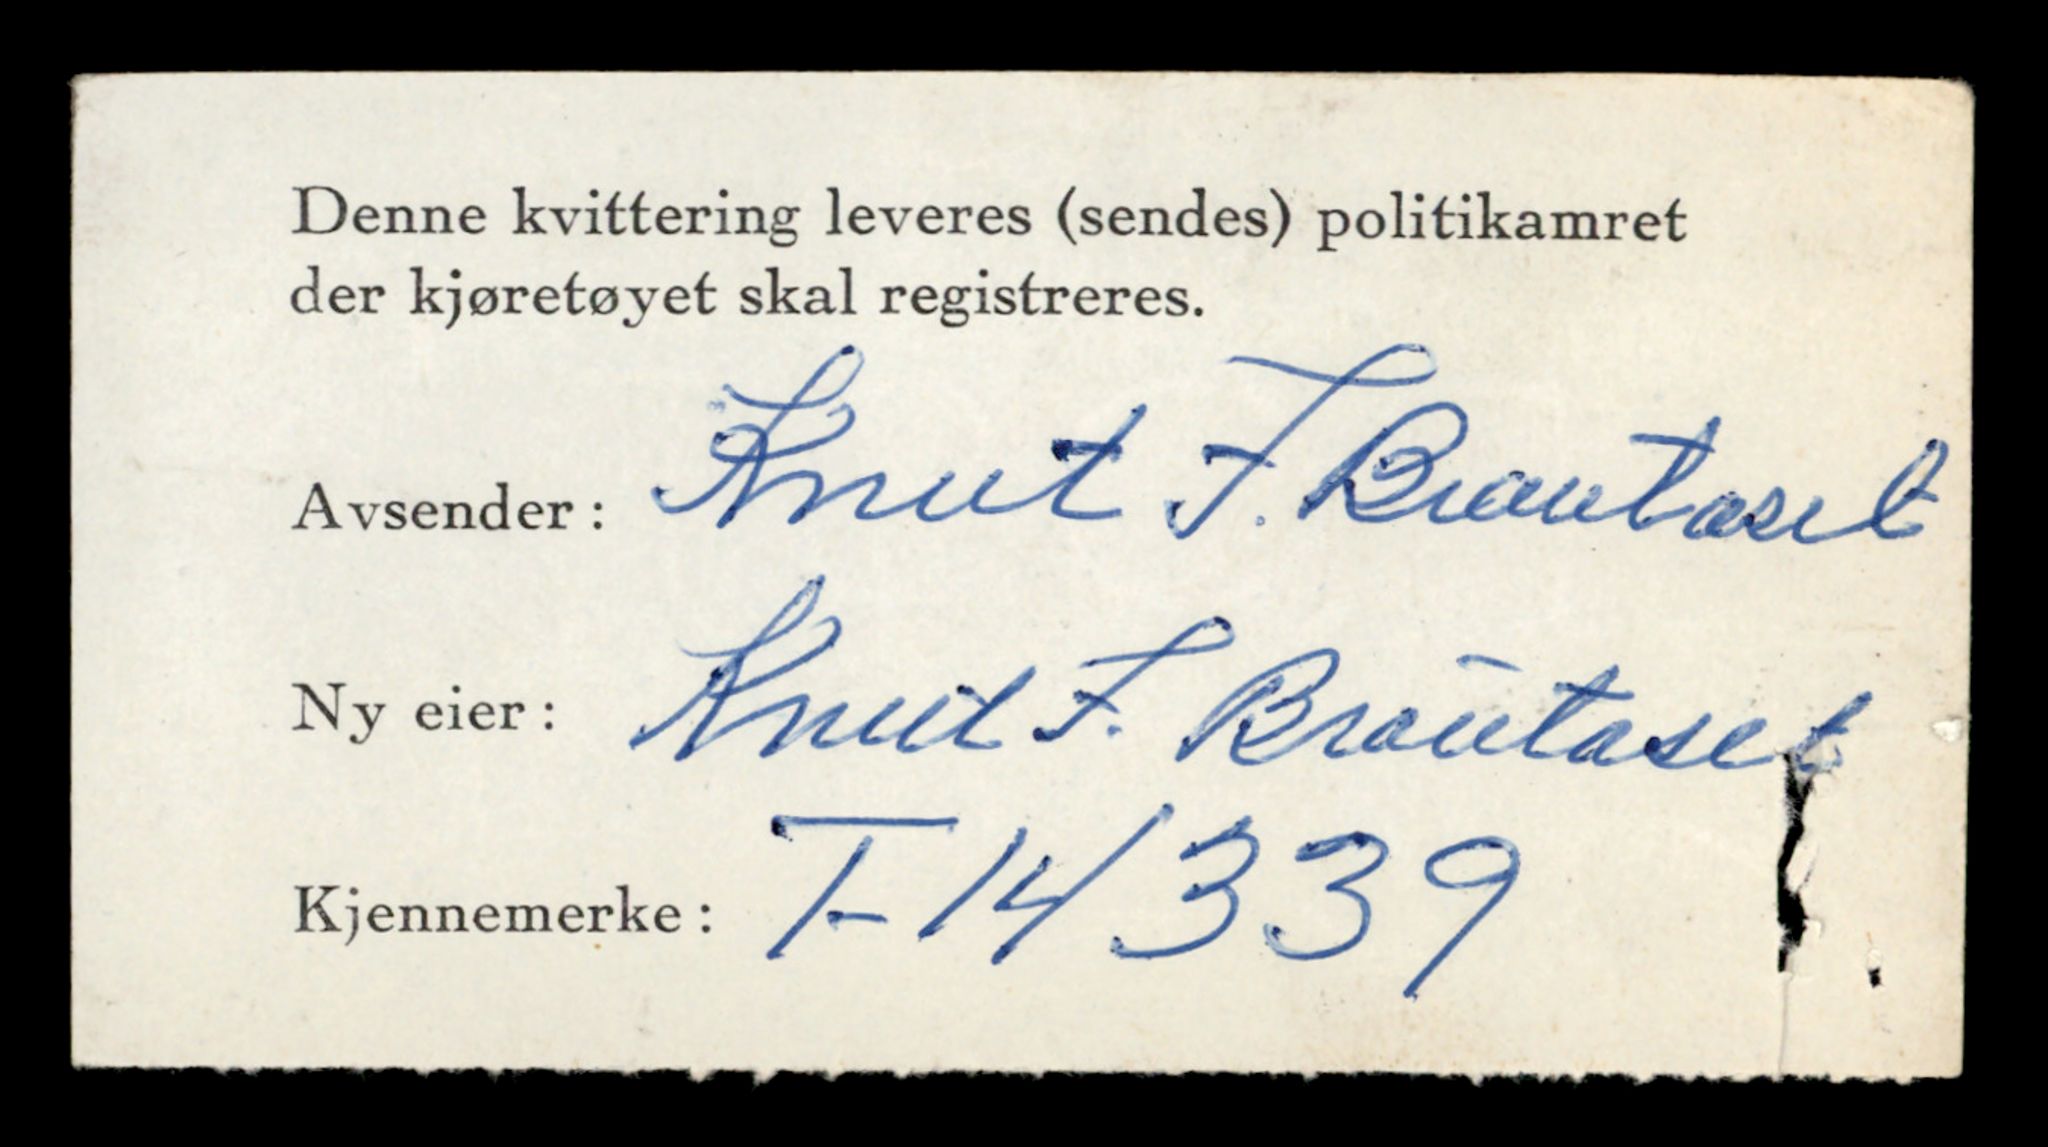 Denne kvittering leveres (sendes) politikamret
der kjøretøyet skal registreres.
Avsender: Knut F. Brautaset
Ny eier: Knut F. Brautaset
Kjennemerke: T-14339